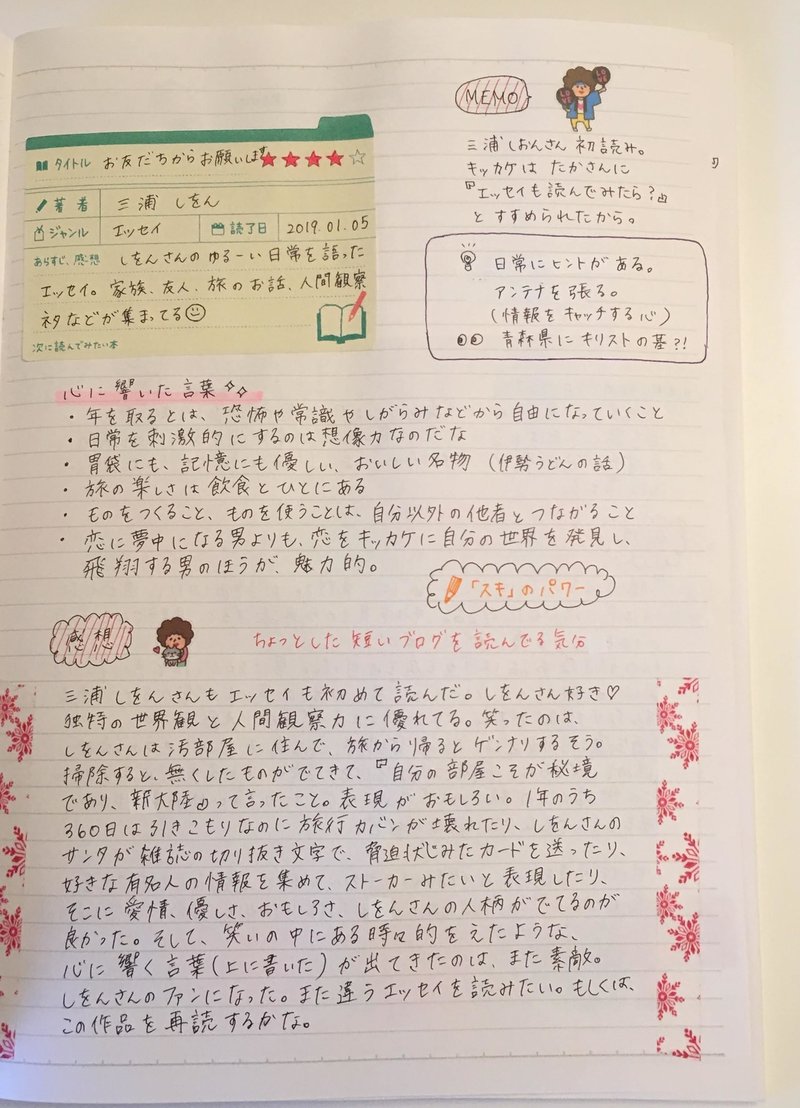 MEMO
三浦しおんさん初読み。
キッカケは たかさんに
『エッセイも読んでみたら?』
と すすめられたから。
タイトル お友だちからお願いします ★★★★☆
著者 三浦 しをん
ジャンル エッセイ 読了日 2019.01.05
あらすじ、感想 しをんさんのゆるーい日常を語った
エッセイ。家族、友人、旅のお話、人間観察
ネタなどが集まってる
次に読んでみたい本
日常にヒントがある。
アンテナを張る。
(情報をキャッチする心)
青森県にキリストの墓?!
心に響いた言葉
・年を取るとは、恐怖や常識やしがらみなどから自由になっていくこと
・日常を刺激的にするのは想像力なのだな
・胃袋にも、記憶にも優しい、おいしい名物 (伊勢うどんの話)
・旅の楽しさは飲食とひとにある
・ものをつくること、ものを使うことは、自分以外の他者とつながること
・恋に夢中になる男よりも、恋をキッカケに自分の世界を発見し、
飛翔する男のほうが、魅力的。
「スキ」のパワー
感想
ちょっとした短いブログを読んでる気分
三浦しをんさんもエッセイも初めて読んだ。しをんさん好き♡
独特の世界観と人間観察力に優れてる。笑ったのは、
しをんさんは汚部屋に住んで、旅から帰るとゲンナリするそう。
掃除すると、無くしたものがでてきて、『自分の部屋こそが秘境
であり、新大陸』って言ったこと。表現がおもしろい。1年のうち
360日は引きこもりなのに旅行カバンが壊れたり、しをんさんの
サンタが雑誌の切り抜き文字で、脅迫状じみたカードを送ったり、
好きな有名人の情報を集めて、ストーカーみたいと表現したり、
そこに愛情、優しさ、おもしろさ、しをんさんの人柄がでてるのが
良かった。そして、笑いの中にある時々的をえたような、
心に響く言葉(上に書いた)が出てきたのは、また素敵。
しをんさんのファンになった。また違うエッセイを読みたい。もしくは、
この作品を再読するかな。